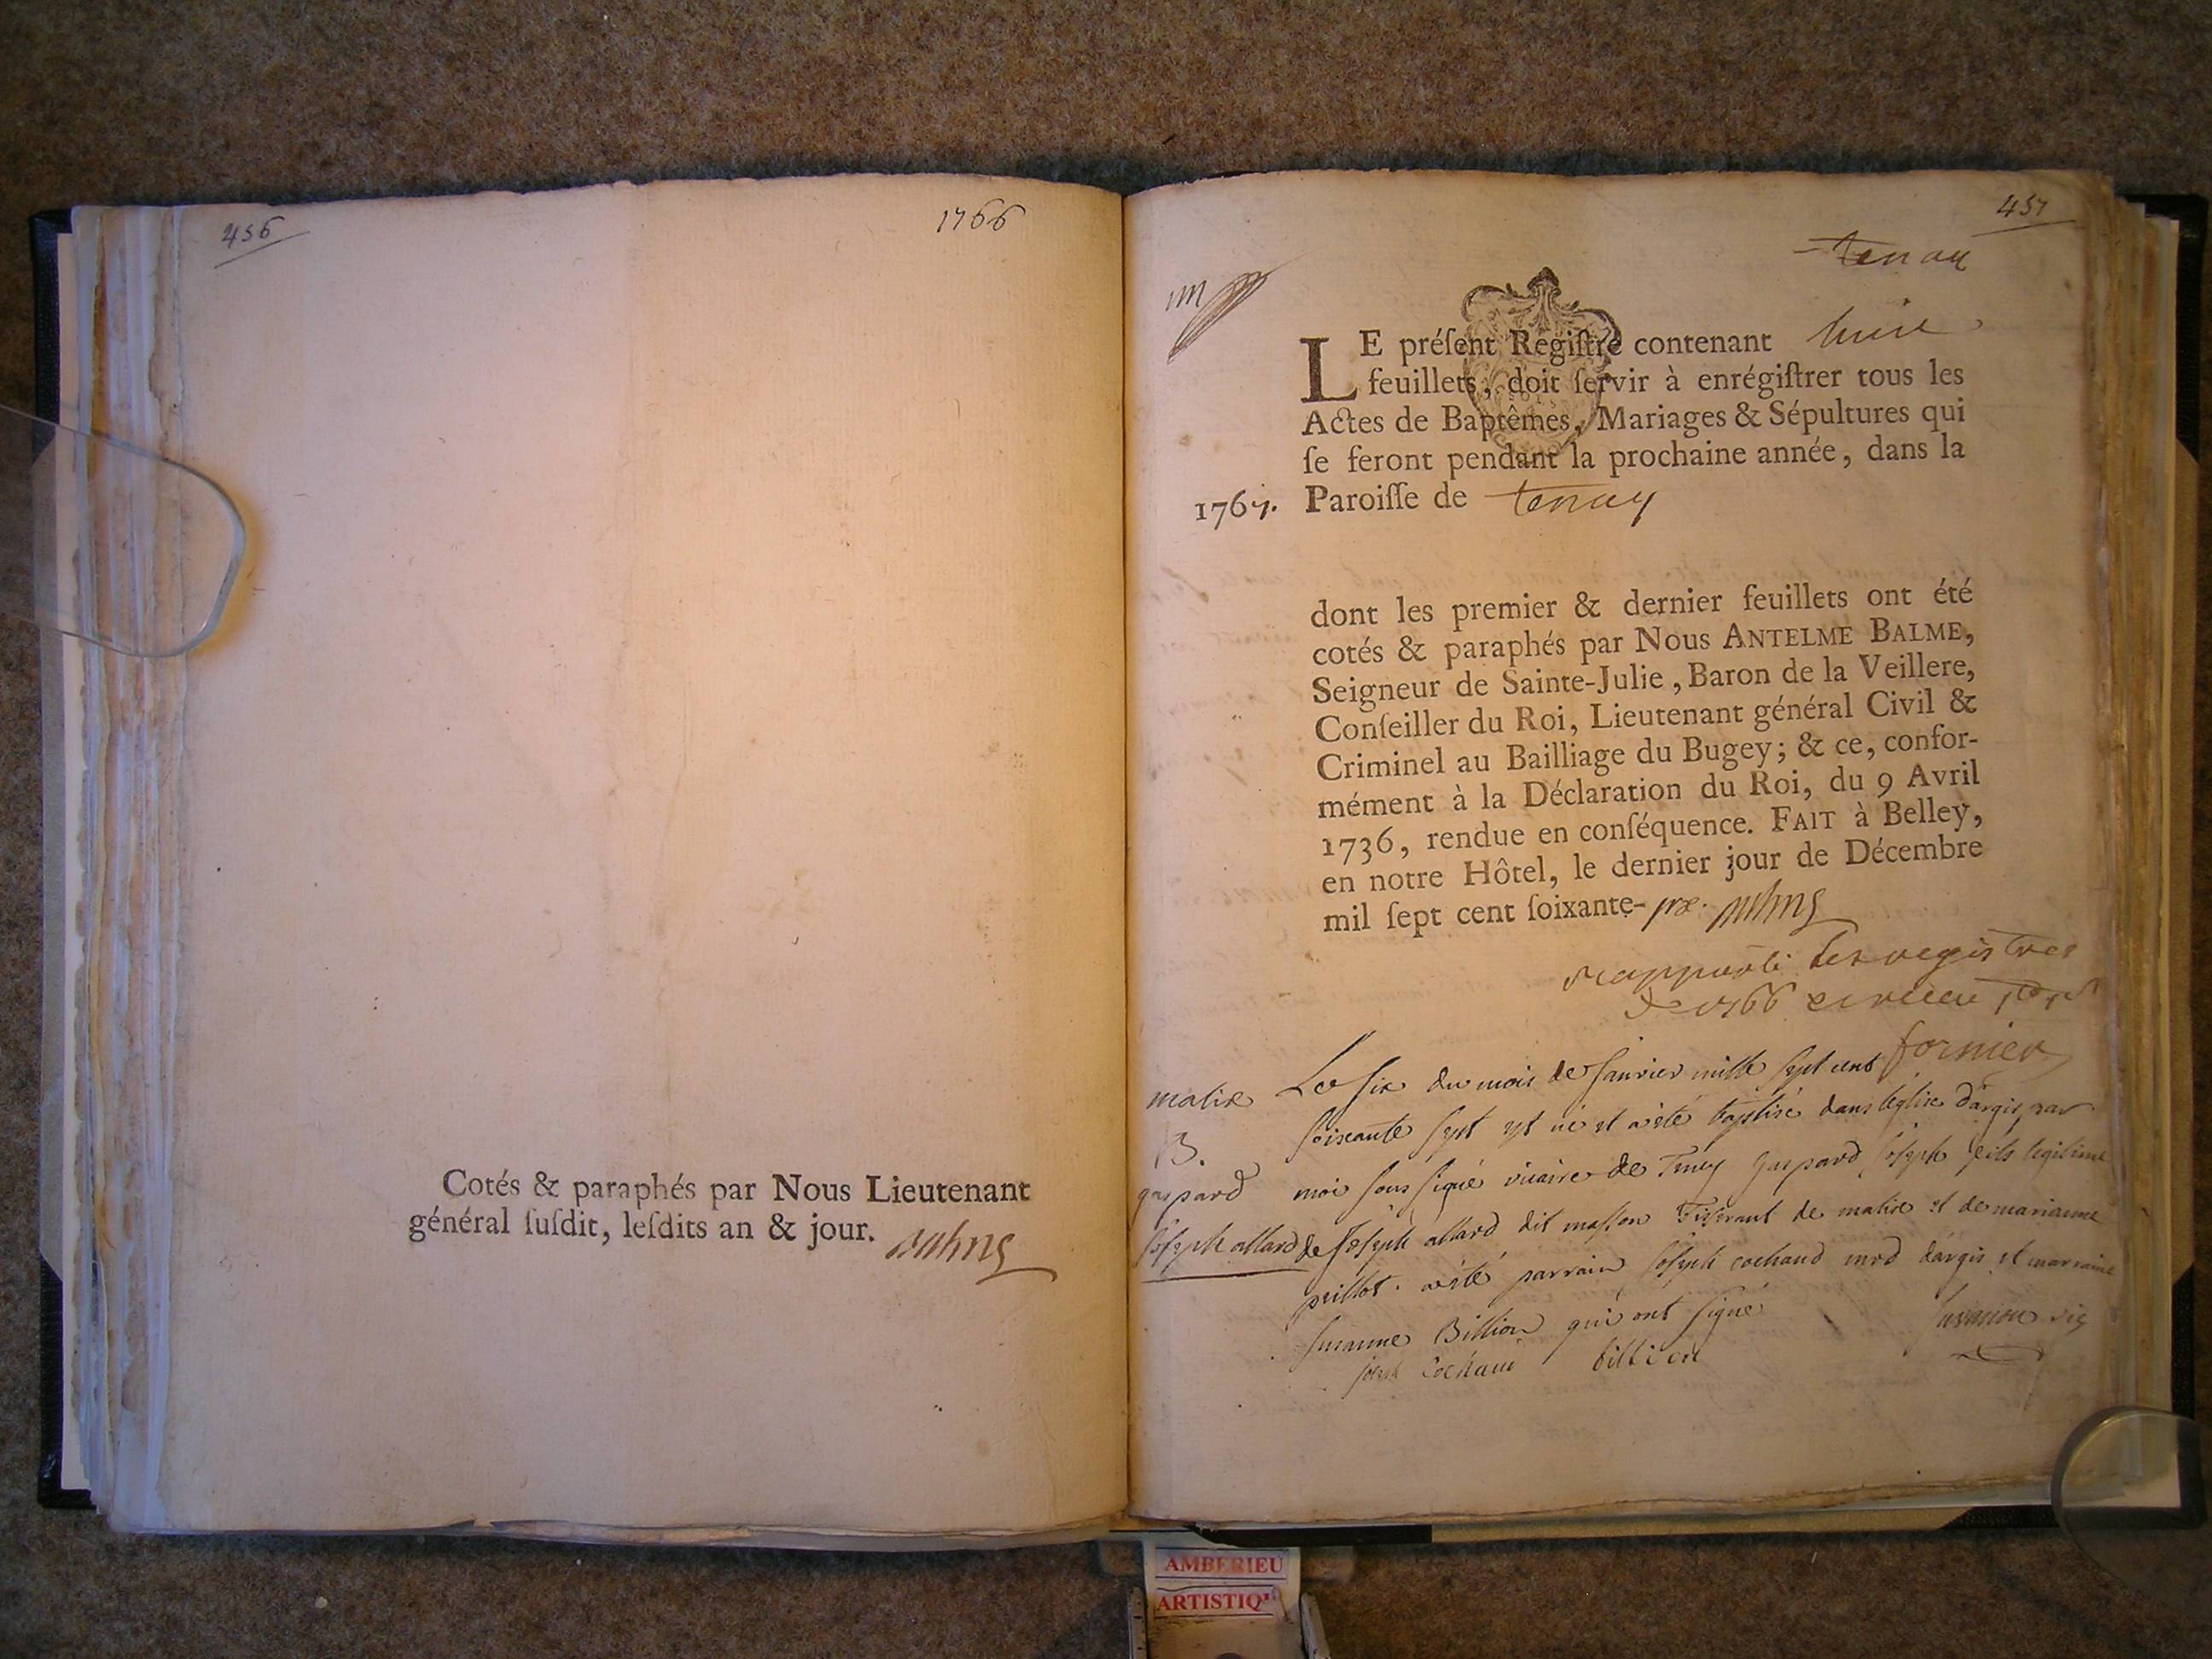 456
1766
Cotés & paraphés par Nous Lieutenant
général ſuſdit, leſdits an & jour.
457
tenay
LE préſent Regiſtre contenant huit
feuillets, doit ſervir à enrégiſtrer tous les
Actes de Baptêmes, Mariages & Sépultures qui
ſe feront pendant la prochaine année, dans la
1767. Paroiſſe de tenay
dont les premier & dernier feuillets ont été
cotés & paraphés par Nous ANTELME BALME,
Seigneur de Sainte-Julie, Baron de la Veillere,
Conſeiller du Roi, Lieutenant général Civil &
Criminel au Bailliage du Bugey; & ce, confor-
mément à la Déclaration du Roi, du 9 Avril
1736, rendue en conſéquence. FAIT à Belley,
en notre Hôtel, le dernier jour de Décembre
mil ſept cent ſoixante-
rapporté les registres
de 1766
fornier
malix
B.
gaspard
Joseph allard
Le six du mois de Janvier mille sept cent
soixante sept est né et a été baptisé dans l'église d'argis par
moi sous signé vicaire de Tenay gaspard Joseph fils legitime
de Joseph allard dit masson Tisserant de malix et de marianne
peillot. a été parrain Joseph cochaud mrd d'argis et marraine
susanne Billion qui ont signé
joseph Cochaud billion
AMBERIEU
ARTISTIQ